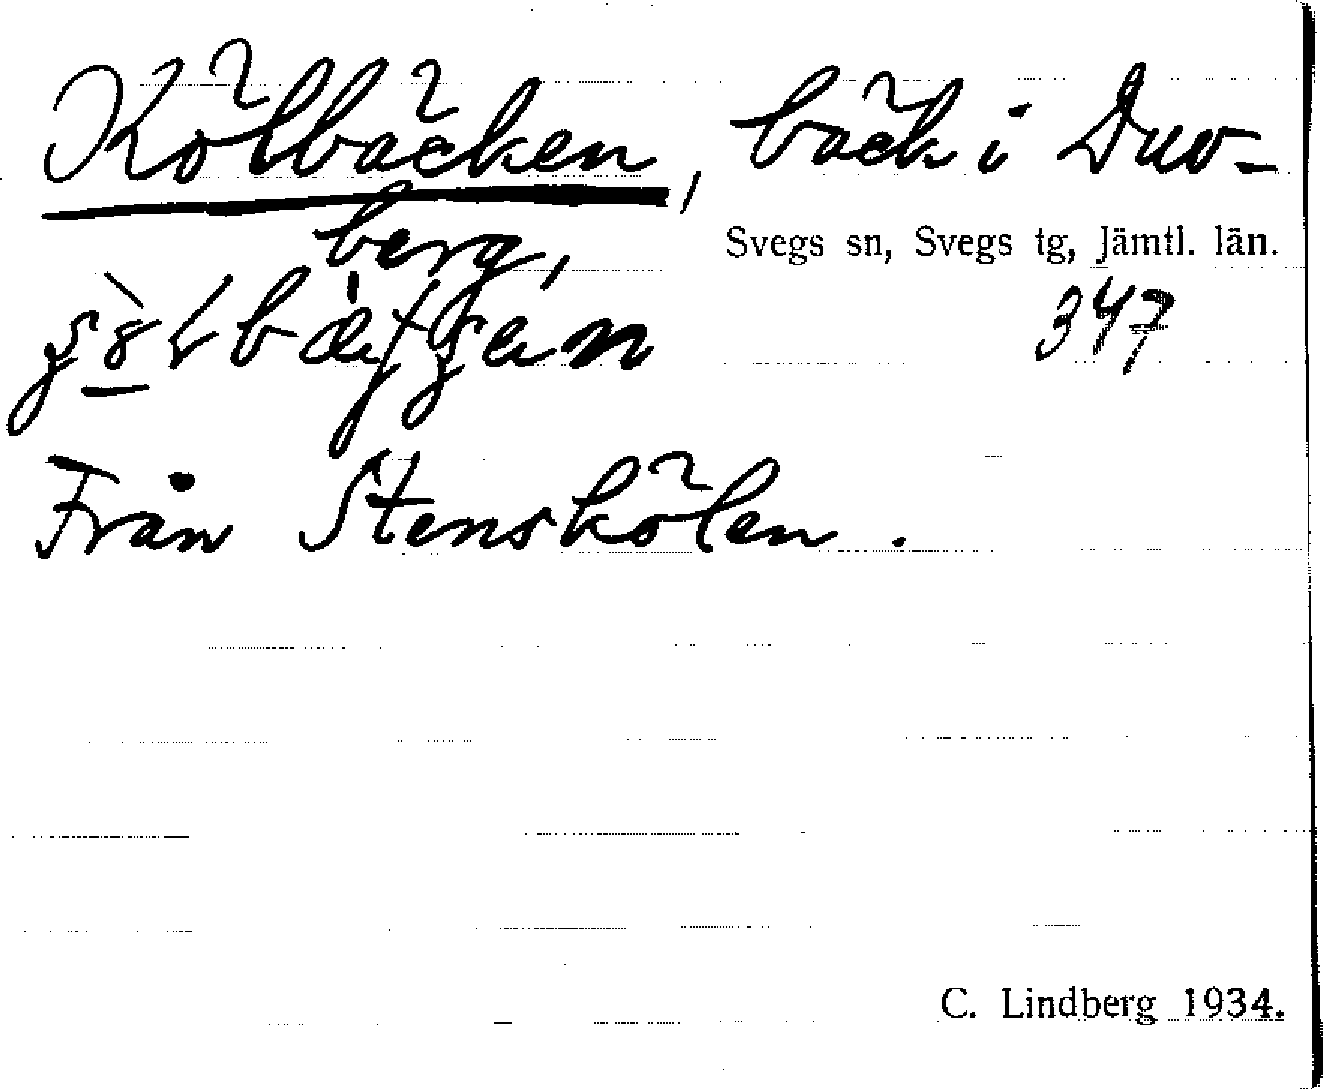 Kölbäcken, bäck i Duv-
berg,
Svegs sn, Svegs tg, Jämtl. län.
347
Från Stenskölen.
C. Lindberg 1934.